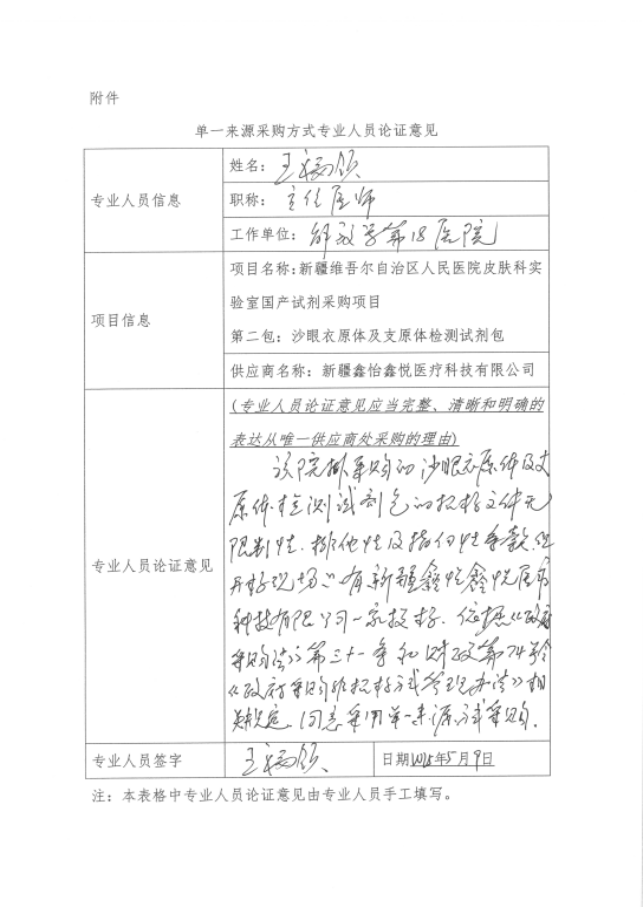 附件
单一来源采购方式专业人员论证意见
专业人员信息
姓名：王福领
职称：主任医师
工作单位：解放军第18医院
项目信息
项目名称：新疆维吾尔自治区人民医院皮肤科实
验室国产试剂采购项目
第二包：沙眼衣原体及支原体检测试剂包
供应商名称：新疆鑫怡鑫悦医疗科技有限公司
专业人员论证意见
(专业人员论证意见应当完整、清晰和明确的
表达从唯一供应商处采购的理由)
该院拟采购的沙眼衣原体及支
原体检测试剂包的招标文件无
限制性、排他性及指向性条款，但
开标现场只有新疆鑫怡鑫悦医疗
科技有限公司一家投标。依据《政府
采购法》第三十一条和财政第74号令
《政府采购非招标方式管理办法》相
关规定，同意采用单一来源方式采购。
专业人员签字
王福领
日期 年5月9日
注：本表格中专业人员论证意见由专业人员手工填写。